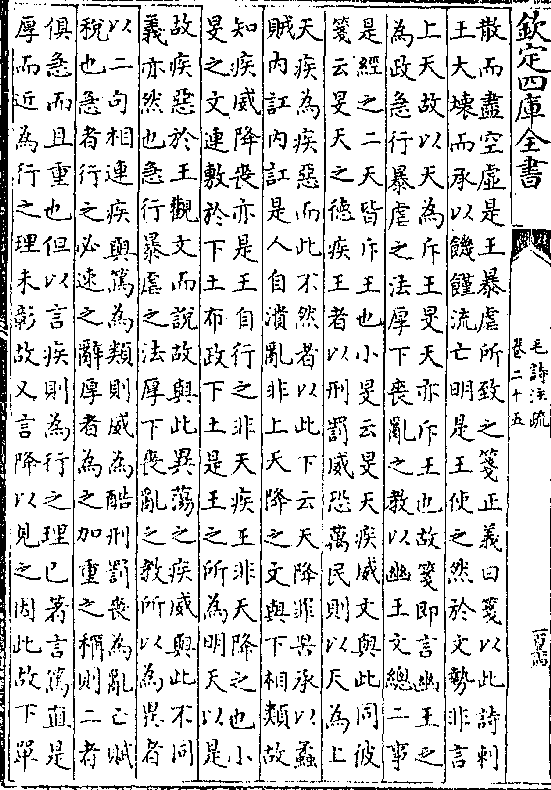 欽定四庫全書
毛詩注疏
卷二十五
散而盡空虛是王暴虐所致之箋正義曰箋以此詩刺
王大壞而承以饑饉流亡明是王使之然於文勢非言
上天故以天為斥王旻天亦斥王也故箋即言幽王之
為政急行暴虐之法厚下喪亂之教以幽王文總二事
是經之二天皆斥王也小旻云旻天疾威文與此同彼
箋云旻天之德疾王者以刑罰威恐萬民則以天為上
天疾為疾惡而此不然者以此下云天降罪罟承以蟊
賊內訌內訌是人自潰亂非上天降之文與下相類故
知疾威降喪亦是王自行之非天疾王非天降之也小
旻之文連敷於下土布政下土是王之所為明天以是
故疾惡於王觀文而說故與此異蕩之疾威與此不同
義亦然也急行暴虐之法厚下喪亂之教所以為異者
以二句相連疾與篤為類則威為酷刑罰喪為亂亡賦
稅也急者行之必速之辭厚者為之加重之稱則二者
俱急而且重也但以言疾則為行之理已著言篤直是
厚而近為行之理未彰故又言降以見之因此故下單